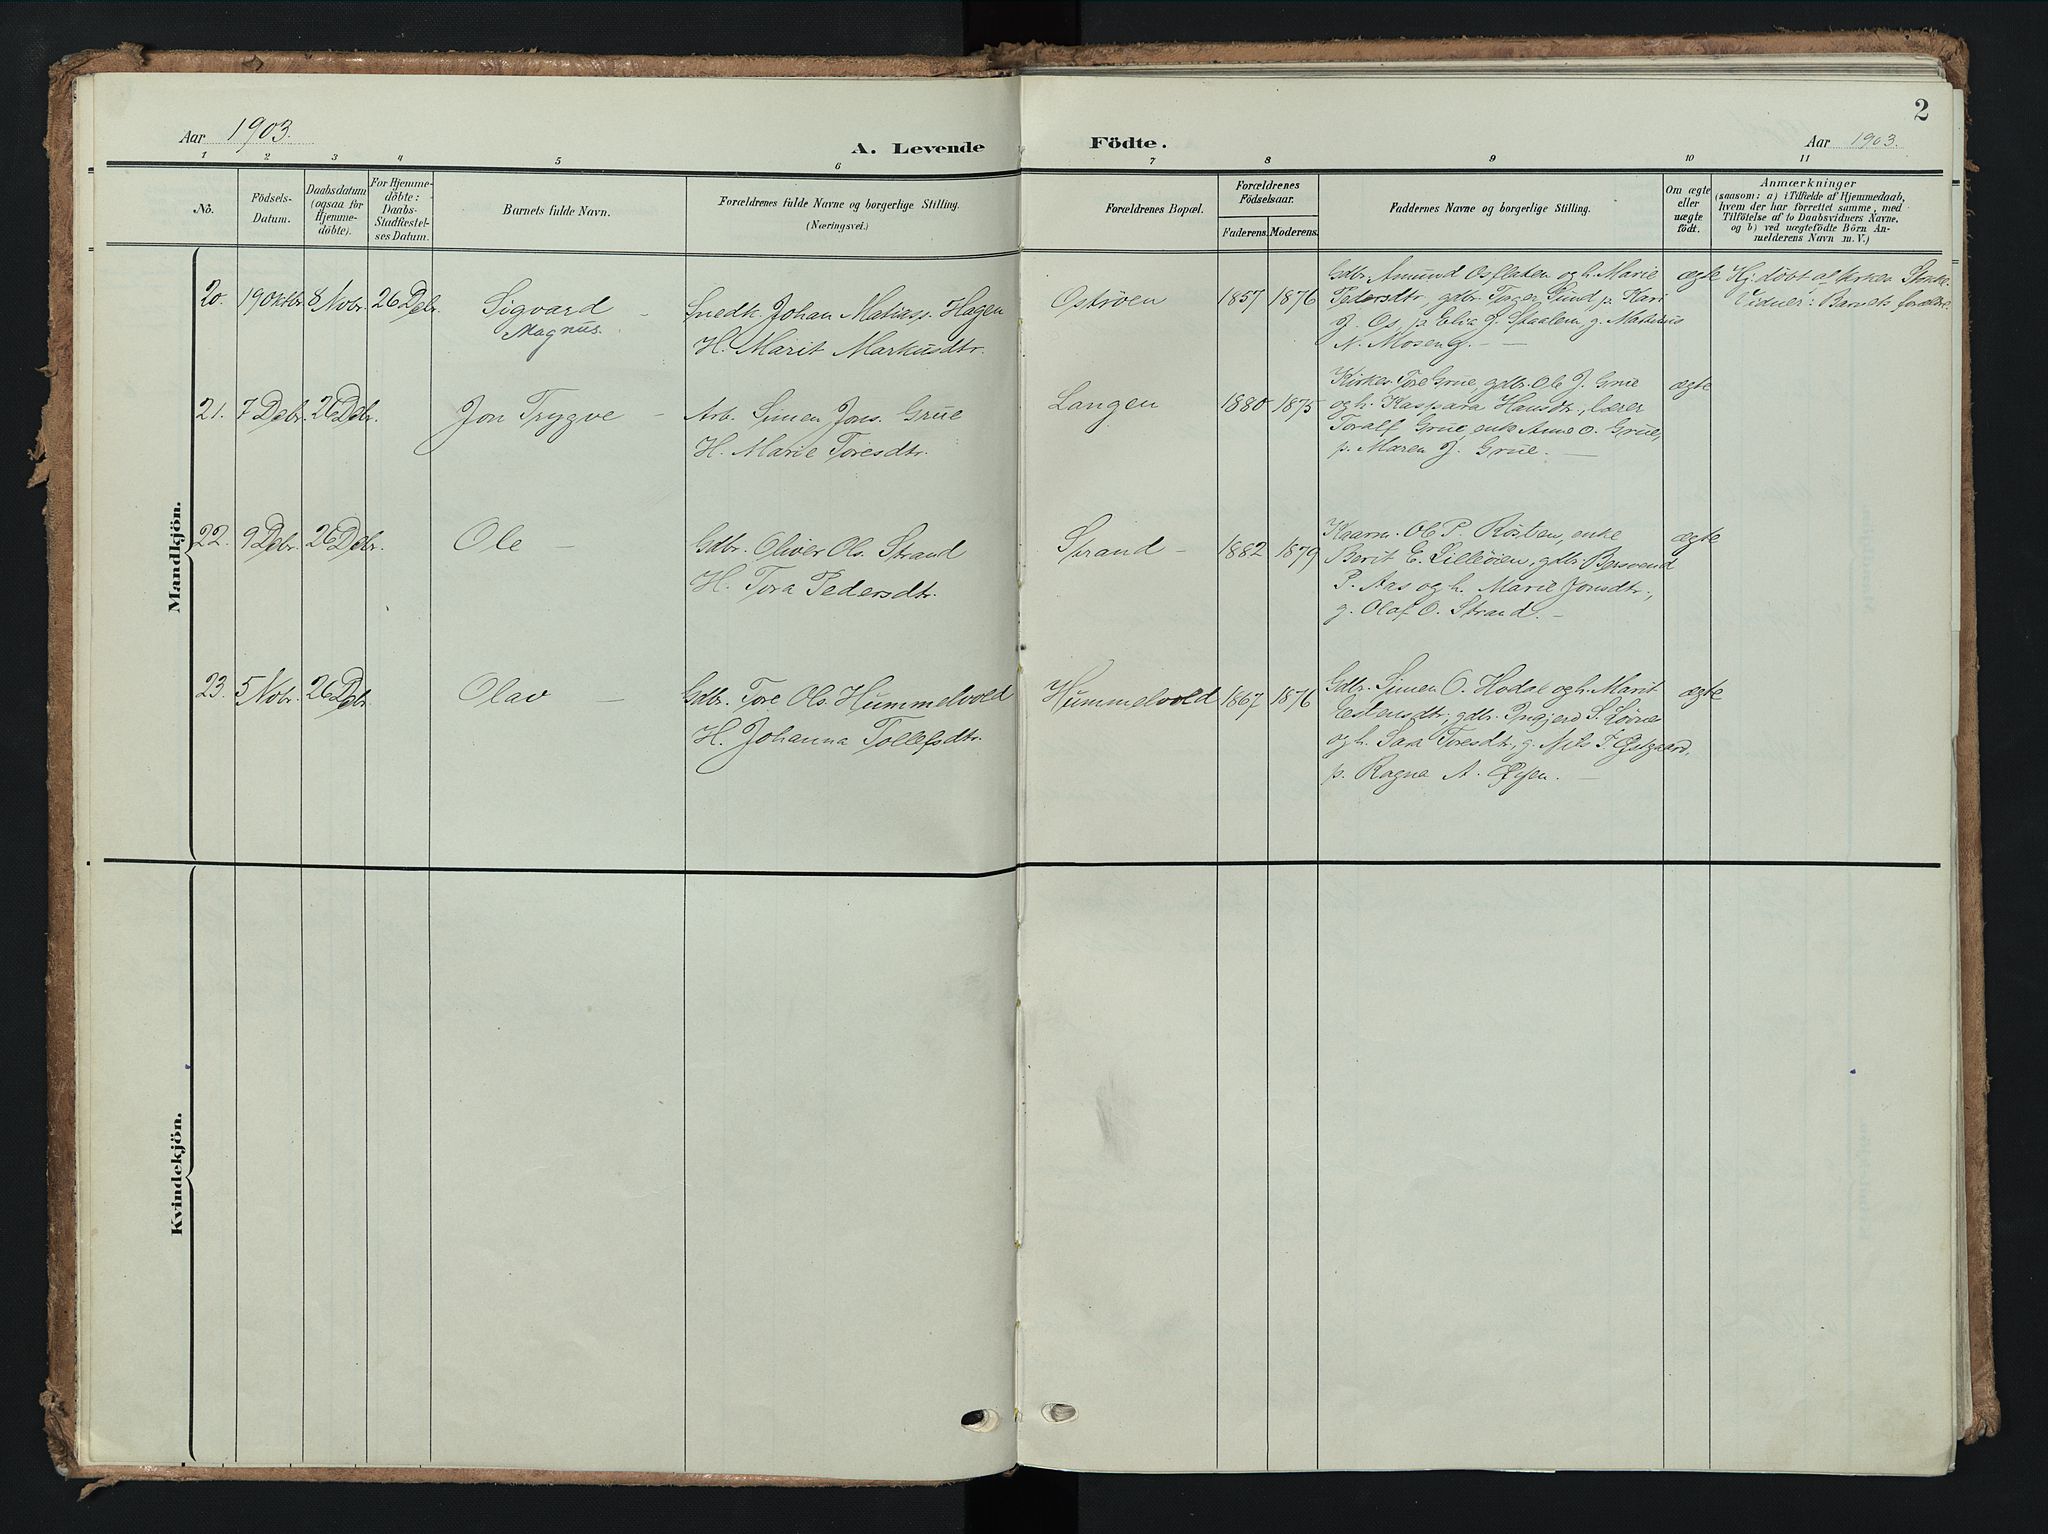 2
Aar 1903.
A. Levende Födte.
Aar 1903.
1 2 3 4 5 6 7 8 9 10 11
No.
Födsels-
Datum.
Daabsdatum
(ogsaa for
Hjemme-
döbte).
For Hjemme-
döbte:
Daabs-
Stadfæstel-
ses Datum.
Barnets fulde Navn.
Forældrenes fulde Navne og borgerlige Stilling.
(Næringsvei.)
Forældrenes Bopæl.
Forældrenes
Födselsaar.
Faderens. Moderens.
Faddernes Navne og borgerlige Stilling.
Om ægte
eller
uægte
födt.
Anmærkninger
(saasom: a) i Tilfælde af Hjemmedaab,
hvem der har forrettet samme, med
Tilföielse af to Daabsvidners Navne,
og b) ved uægtefödte Börn An-
melderens Navn m. V.)
Mandkjön.
20. 19 Oktbr. 8 Novbr. 26 Debr.
Sigvard
Magnus.
Snedk. Johan Matiass. Hagen
H. Marit Markusdtr.
Osrøen
1857 1876
Gdbr. Amund og h. Marie
Pedersdtr, gdbr. Torger Sund, p. Kari
J. Os, p. J. g. Martinus
N. Moseng.
ægte
Hj.døbt af
Barnets
21. 7 Debr. 26 Debr.
Jon Trygve
Arb. Simen Jons. Grue
H. Marie Toresdtr.
Langen
1880 1875
Kirkes. Tore Grue, gdbr. Ole J. Grue
og h. Kaspara Hansdtr., lærer
Toralf Grue, enke Anne O. Grue,
p. Maren J. Grue.
ægte
22. 9 Debr. 26 Debr.
Ole
Gdbr. Oliver Ols. Strand
H. Tora Pedersdtr.
Strand
1882 1879
Kaarm. Ole P. Røsten, enke
Berit E. Lillerøen, gdbr. Bersvend
P. Aas og h. Marie Jonsdtr.,
g. Olaf O. Strand.
ægte
23. 5 Novbr. 26 Debr.
Olav
Gdbr. Tore Ols. Hummelvold
H. Johanna Tollefsdtr.
Hummelvold
1867 1876
Gdbr. Simen O. Hodal og h. Marit
Estensdtr., gdbr. Ingjerd S.
og h. Sara Toresdtr., g. Nils T. Østgaard,
p. Ragna A. Øyen.
ægte
Kvindekjön.